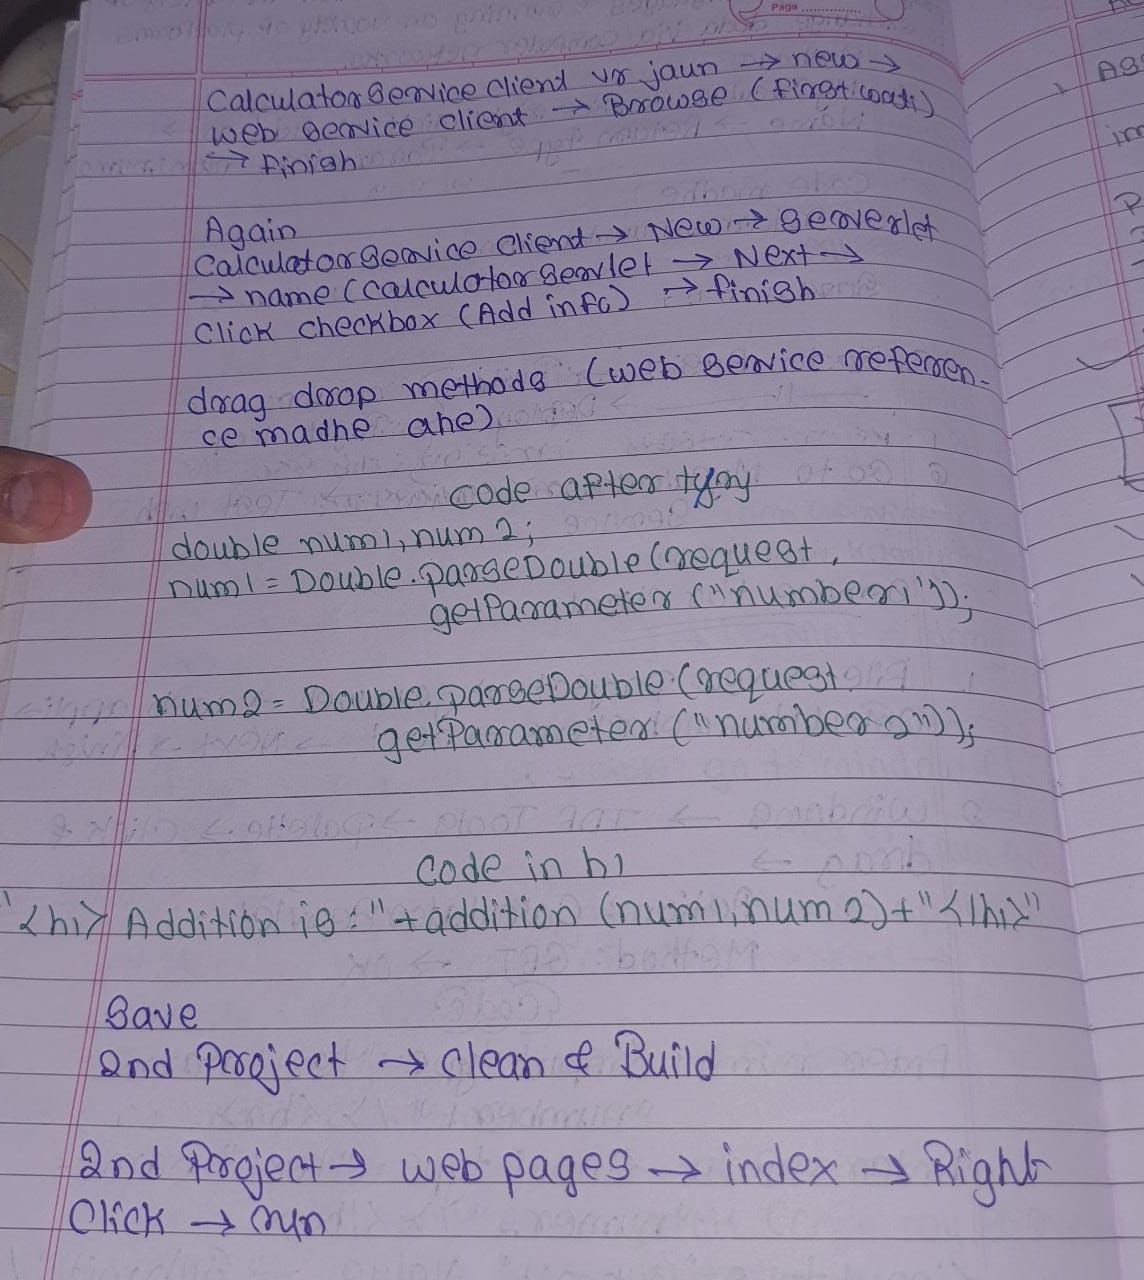 Page
CalculatorServiceClient vr jaun → new →
web service client → Browse (first
→ finish
Again
CalculatorService Client → New → Serverlet
→ name (CalculatorServlet → Next →
Click checkbox (Add info) → finish
drag drop methods (web service referen-
ce madhe ahe)
code after try
double num1, num2;
num1 = Double.parseDouble(request.
getParameter ("number1"));
num2 = Double.parseDouble(request
getParameter ("number2"));
Code in h1
"<h1> Addition is: "+addition (num1, num2)+"</h1>"
Save
2nd Project → clean & Build
2nd Project → web pages → index → Right
Click → run